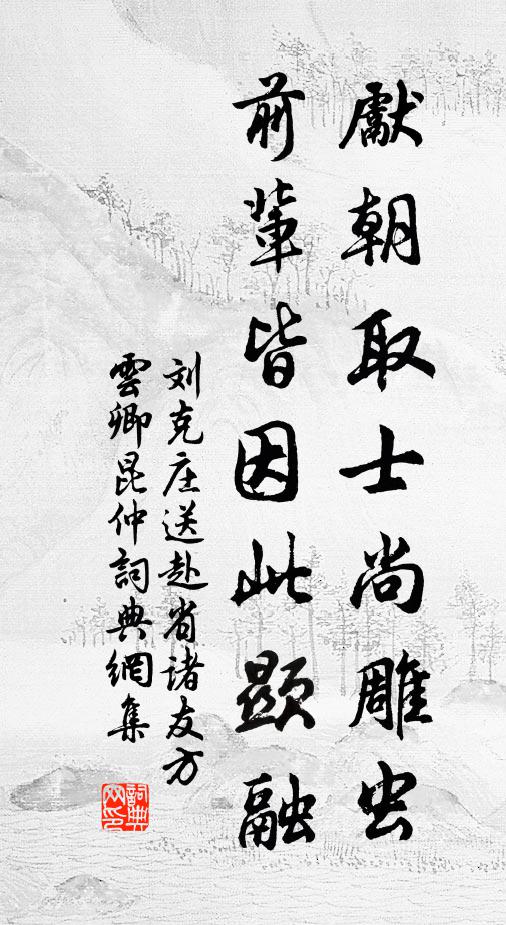 獻朝取士尚雕虫
前輩皆因此顯融
刘克庄送赴省诸友方
雲卿昆仲詞典網集
詞典
网印